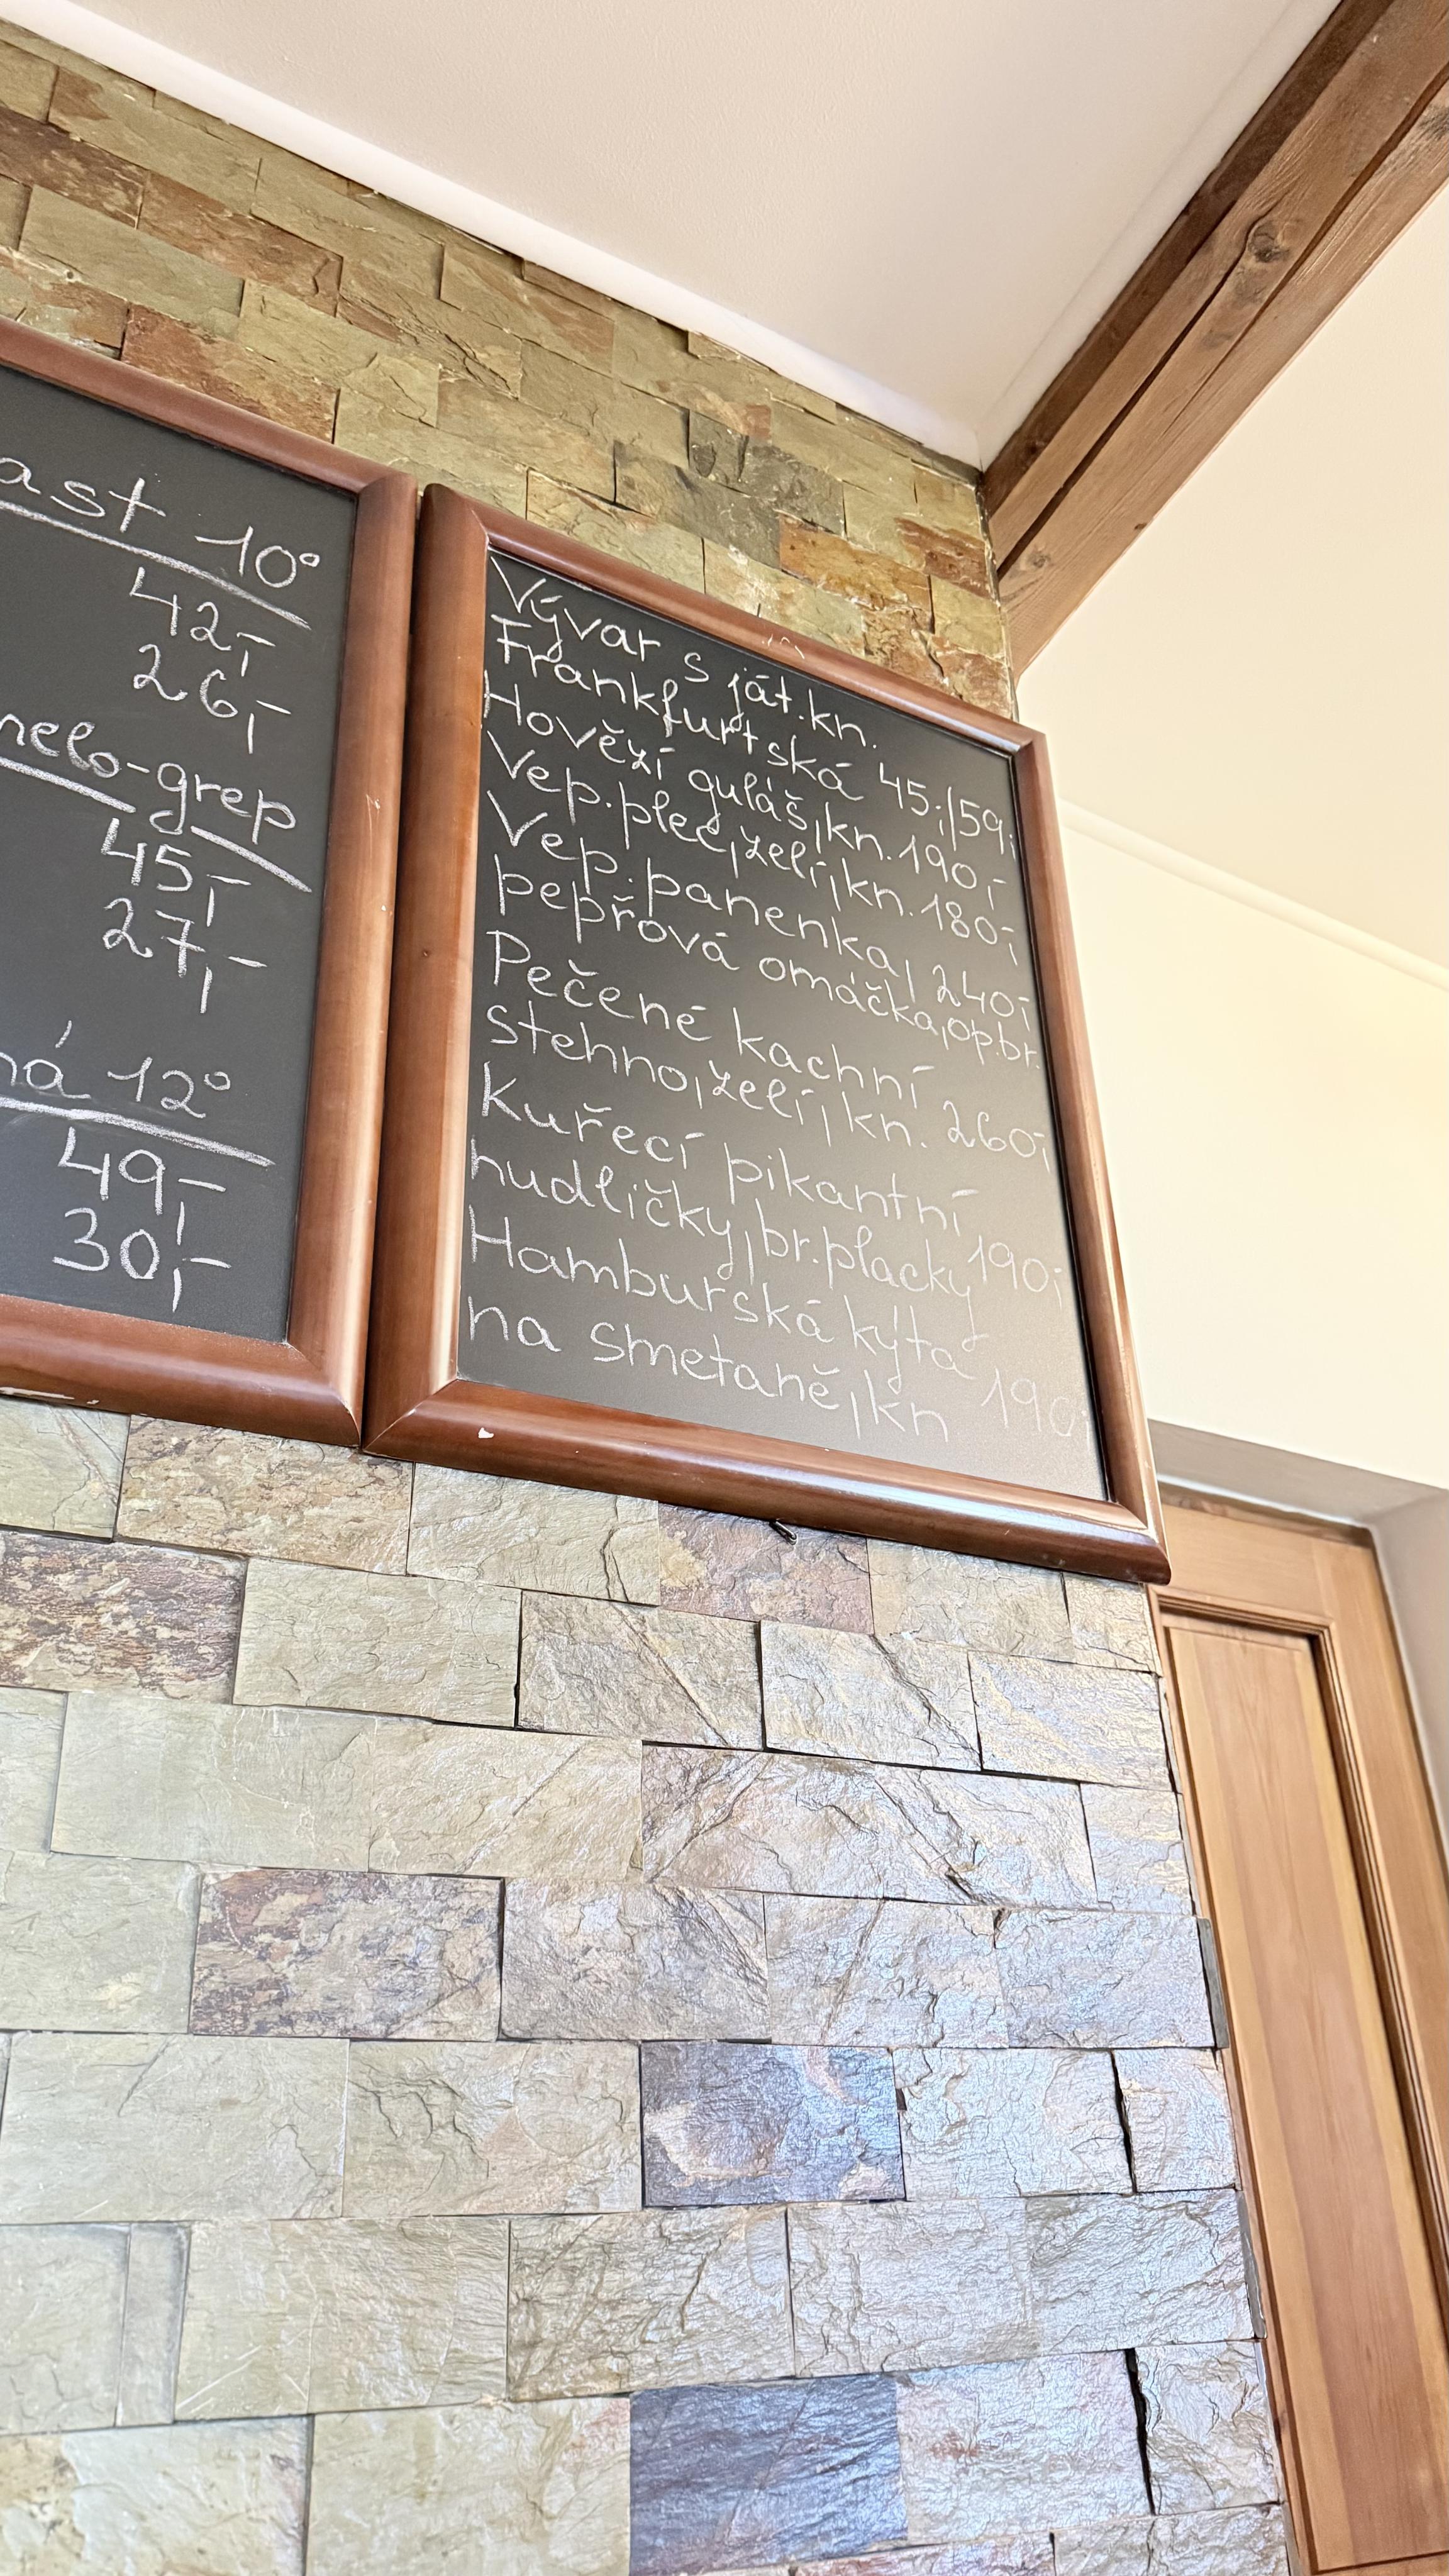 ast 10°
42,-
26,-
melo-grep
45,-
27,-
ná 12°
49,-
30,-
Vývar s ját.kn.
Frankfurtská 45,-/59,-
Hovězí guláš,kn. 190,-
Vep.plec,zelí,kn. 180,-
Vep.panenka, 240,-
pepřová omáčka,op.br.
Pečené kachní
stehno,zelí,kn. 260,-
Kuřecí pikantní
nudličky,br.placky 190,-
Hamburská kýta
na smetaně,kn 190